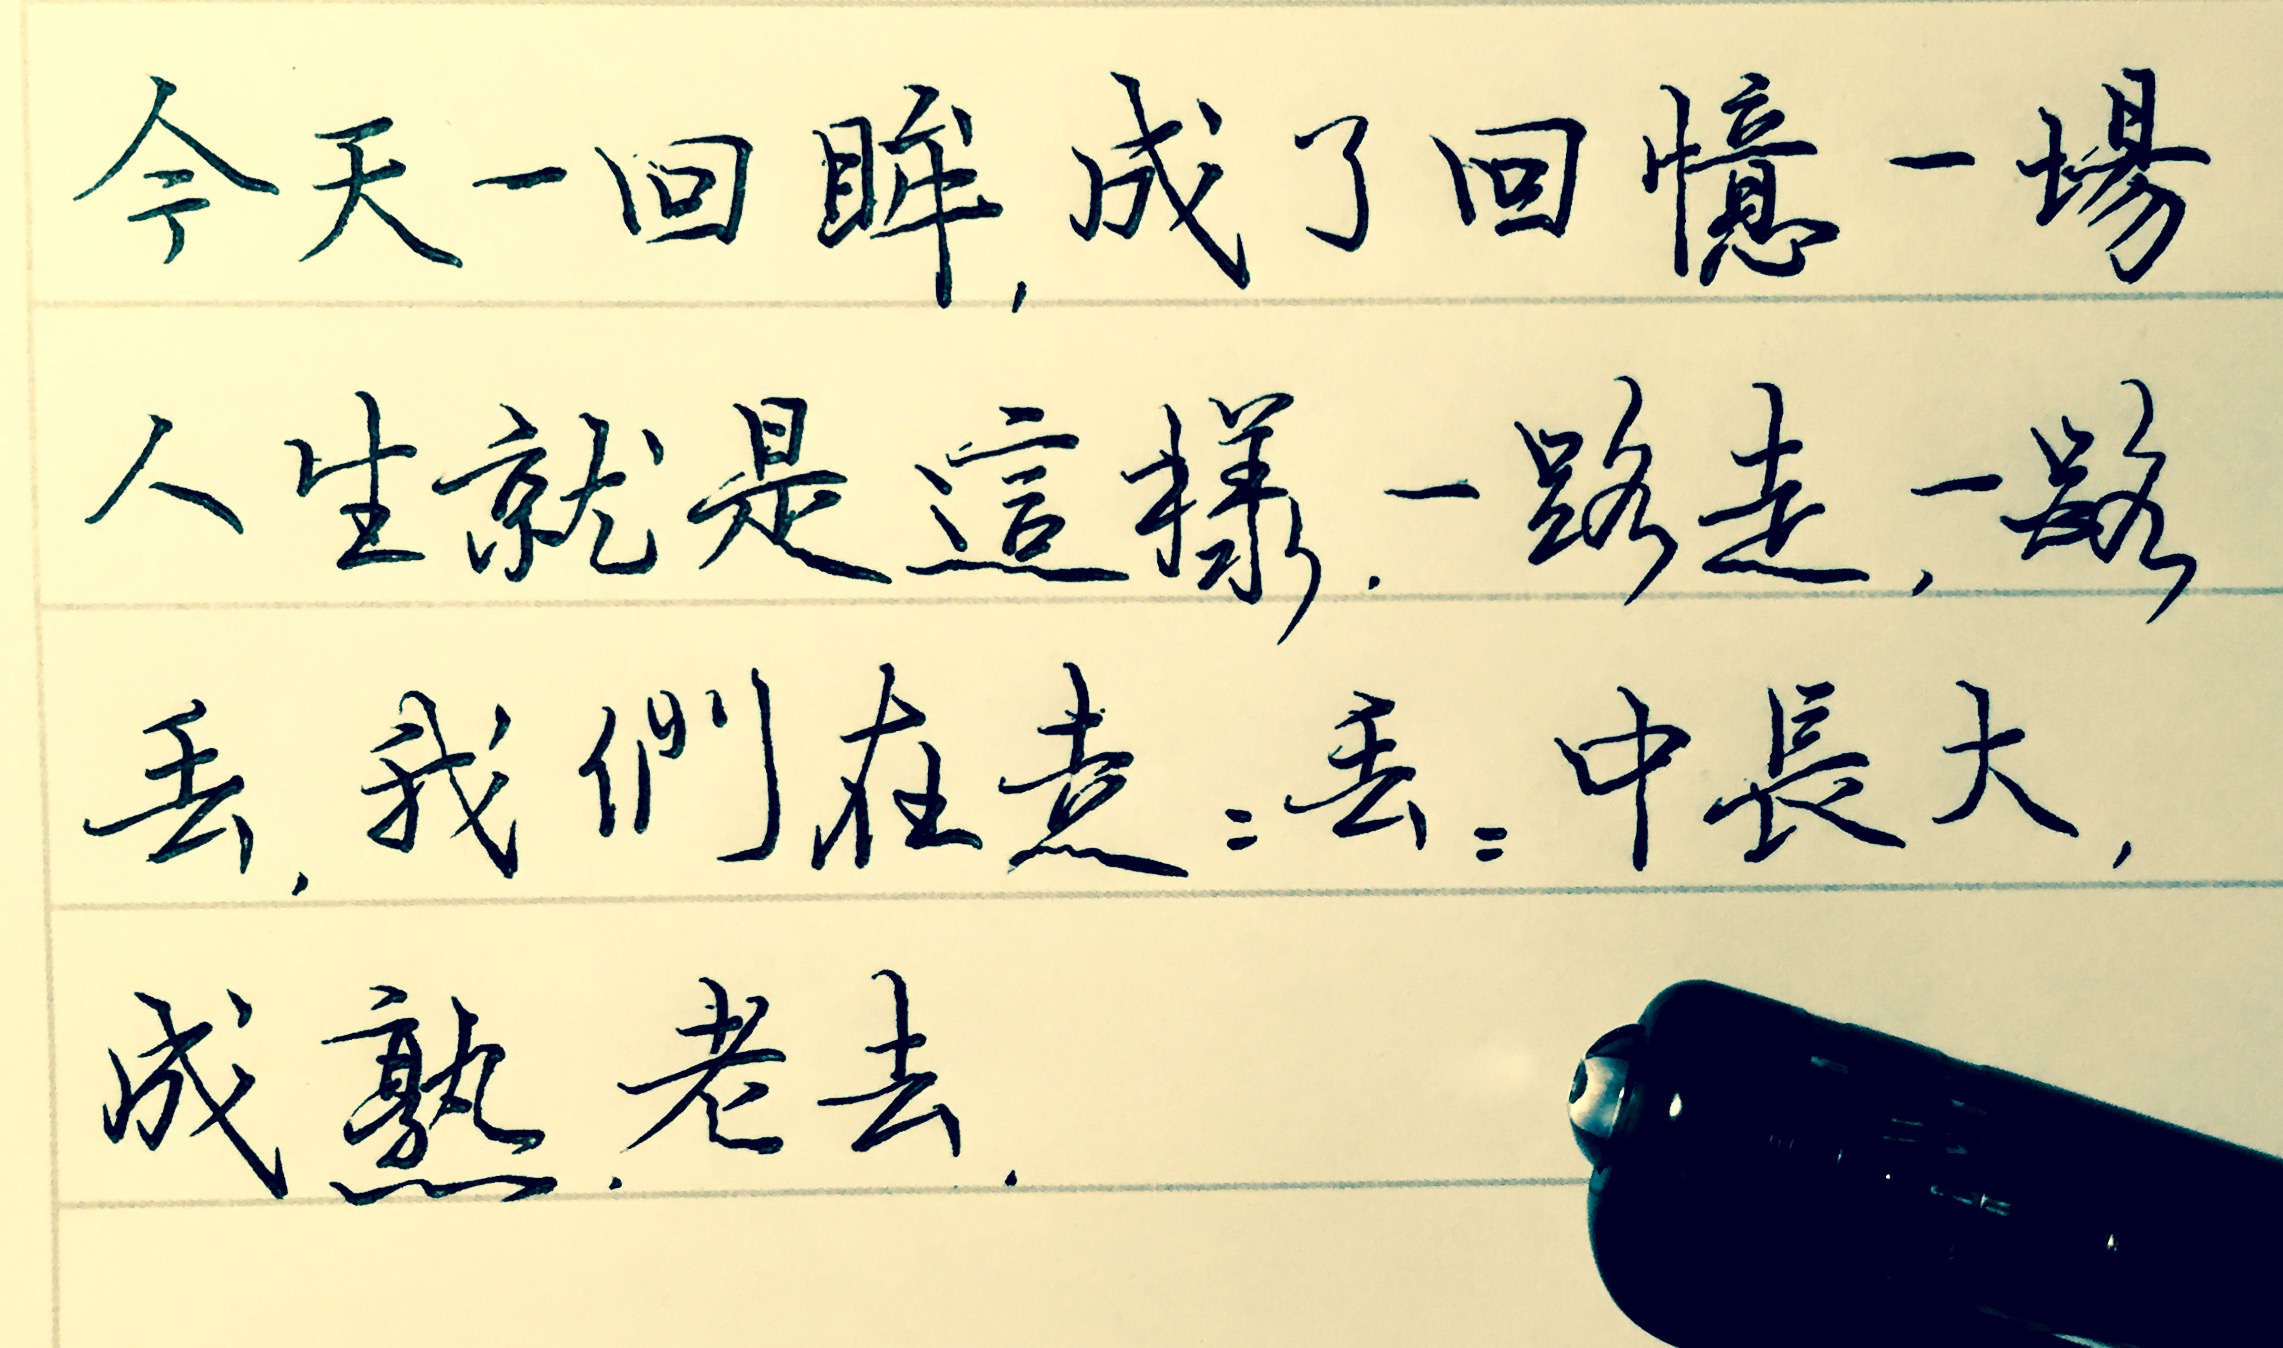 今天一回眸,成了回憶一場
人生就是這樣.一路走,一路
丟,我們在走:丟:中長大,
成熟.老去.